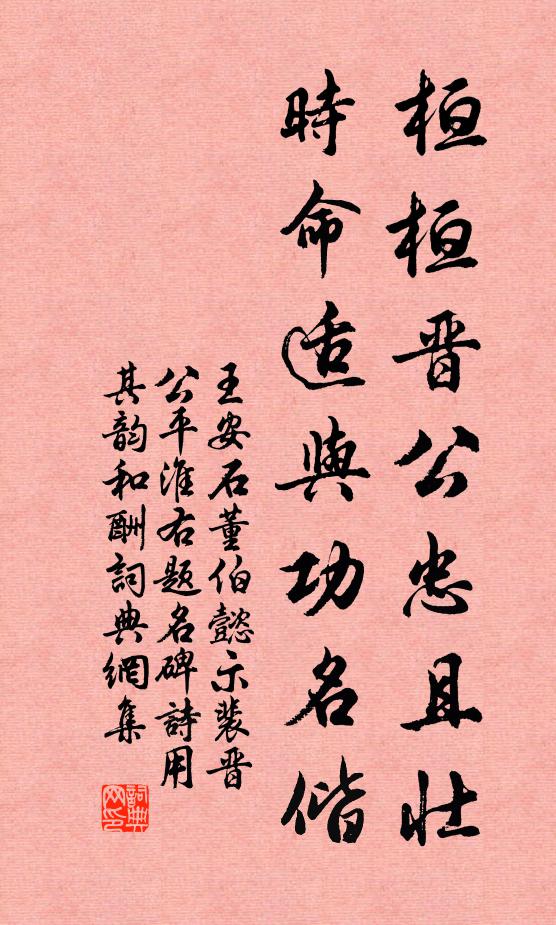 桓桓晋公忠且壮
時命适與功名偕
王安石董伯懿示裴晋
公平淮右題名碑詩用
其韵和酬詞典網集
詞典网印